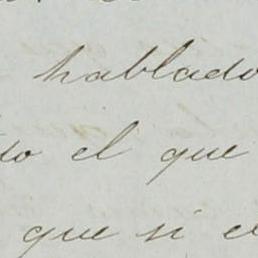 hablado
do el que
que si el